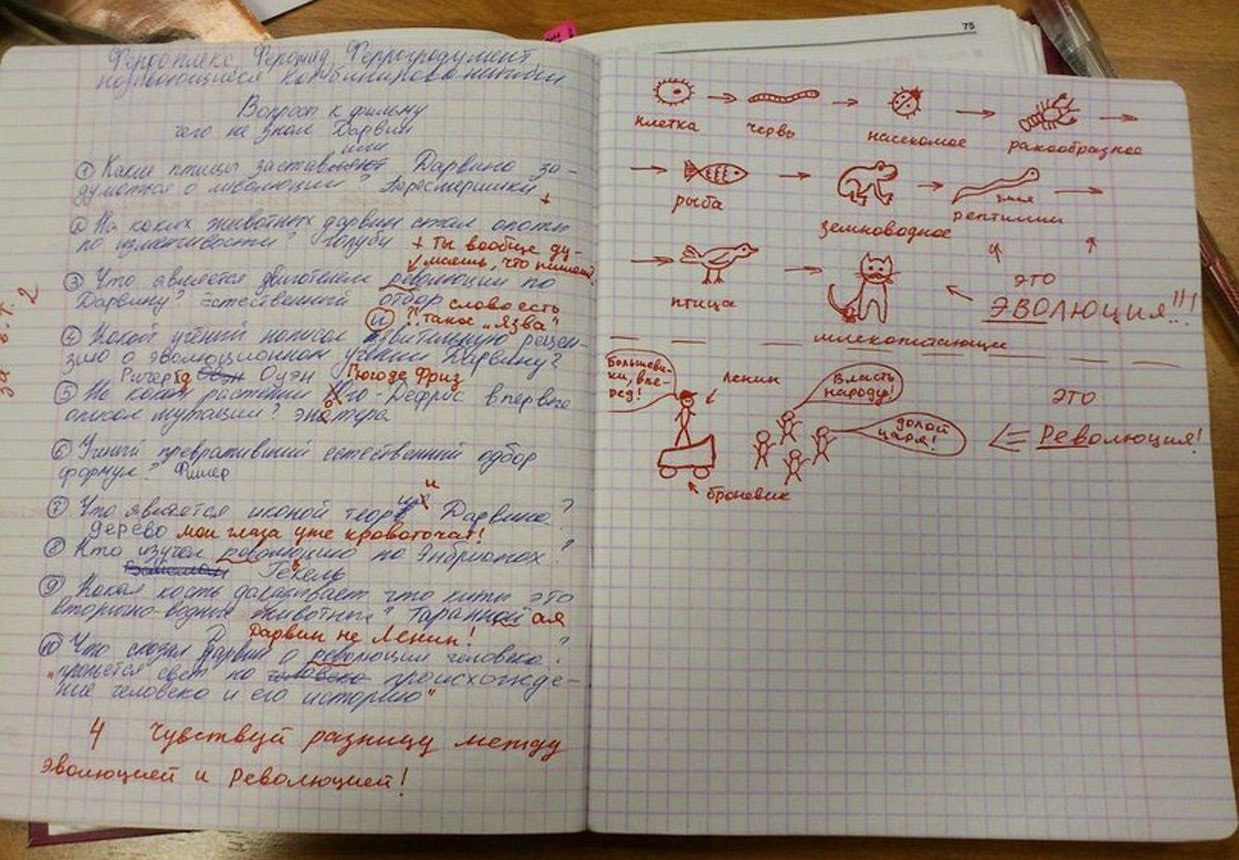 Вопросы к фильму
чего не знал Дарвин
или
① Какие птицы заставляют Дарвина за-
думаться о эволюции? Пересмешники +
② На каких животных дарвин стал опыты
по изменчивости? голуби + Ты вообще ду-
маешь, что пишешь?
③ Что является двигателем революции по
Дарвину? естественный отбор слова есть
такое „Язва"
④ Какой учёный написал рецен-
зию о эволюционном учении Дарвину?
Ричард Оуэн Гюго де Фриз
⑤ На каком растении Де Фрис впервые
описал мутации? энотера
⑥ Учёный превративший естественный одбор
формул? Фишер
⑦ Что является иконой теории Дарвина?
дерево мои глаза уже кровоточат!
⑧ Кто изучал революцию по Энбрионах?
Гекель
⑨ Какая кость доказывает что киты это
вторично-водные животные? Таранной ая
Дарвин не Ленин!
⑩ Что сказал Дарвин о революции человека?
„прольётся свет на человека происхожде-
ние человека и его историю"
4 Чувствуй разницу между
Эволюцией и Революцией!
75
клетка червь насекомое ракообразное
рыба земноводное змея рептилии
птица
это
ЭВОЛЮЦИЯ!!!
млекопитающие
Большеви-
ки, впе-
рёд!
Ленин
Власть
народу!
долой
царя!
это
Революция!
броневик